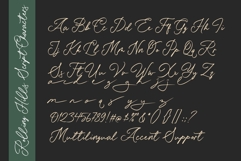 Rolling Hills Script Characters
Aa Bb Cc Dd Ee Ff Gg Hh Ii
Jj Kk Ll Mm Nn Oo Pp Qq Rr
Ss Tt Uu Vv Ww Xx Yy Zz
m n o q s y z
0123456789!#@$%&*()[]::?
Multilingual Accent Support